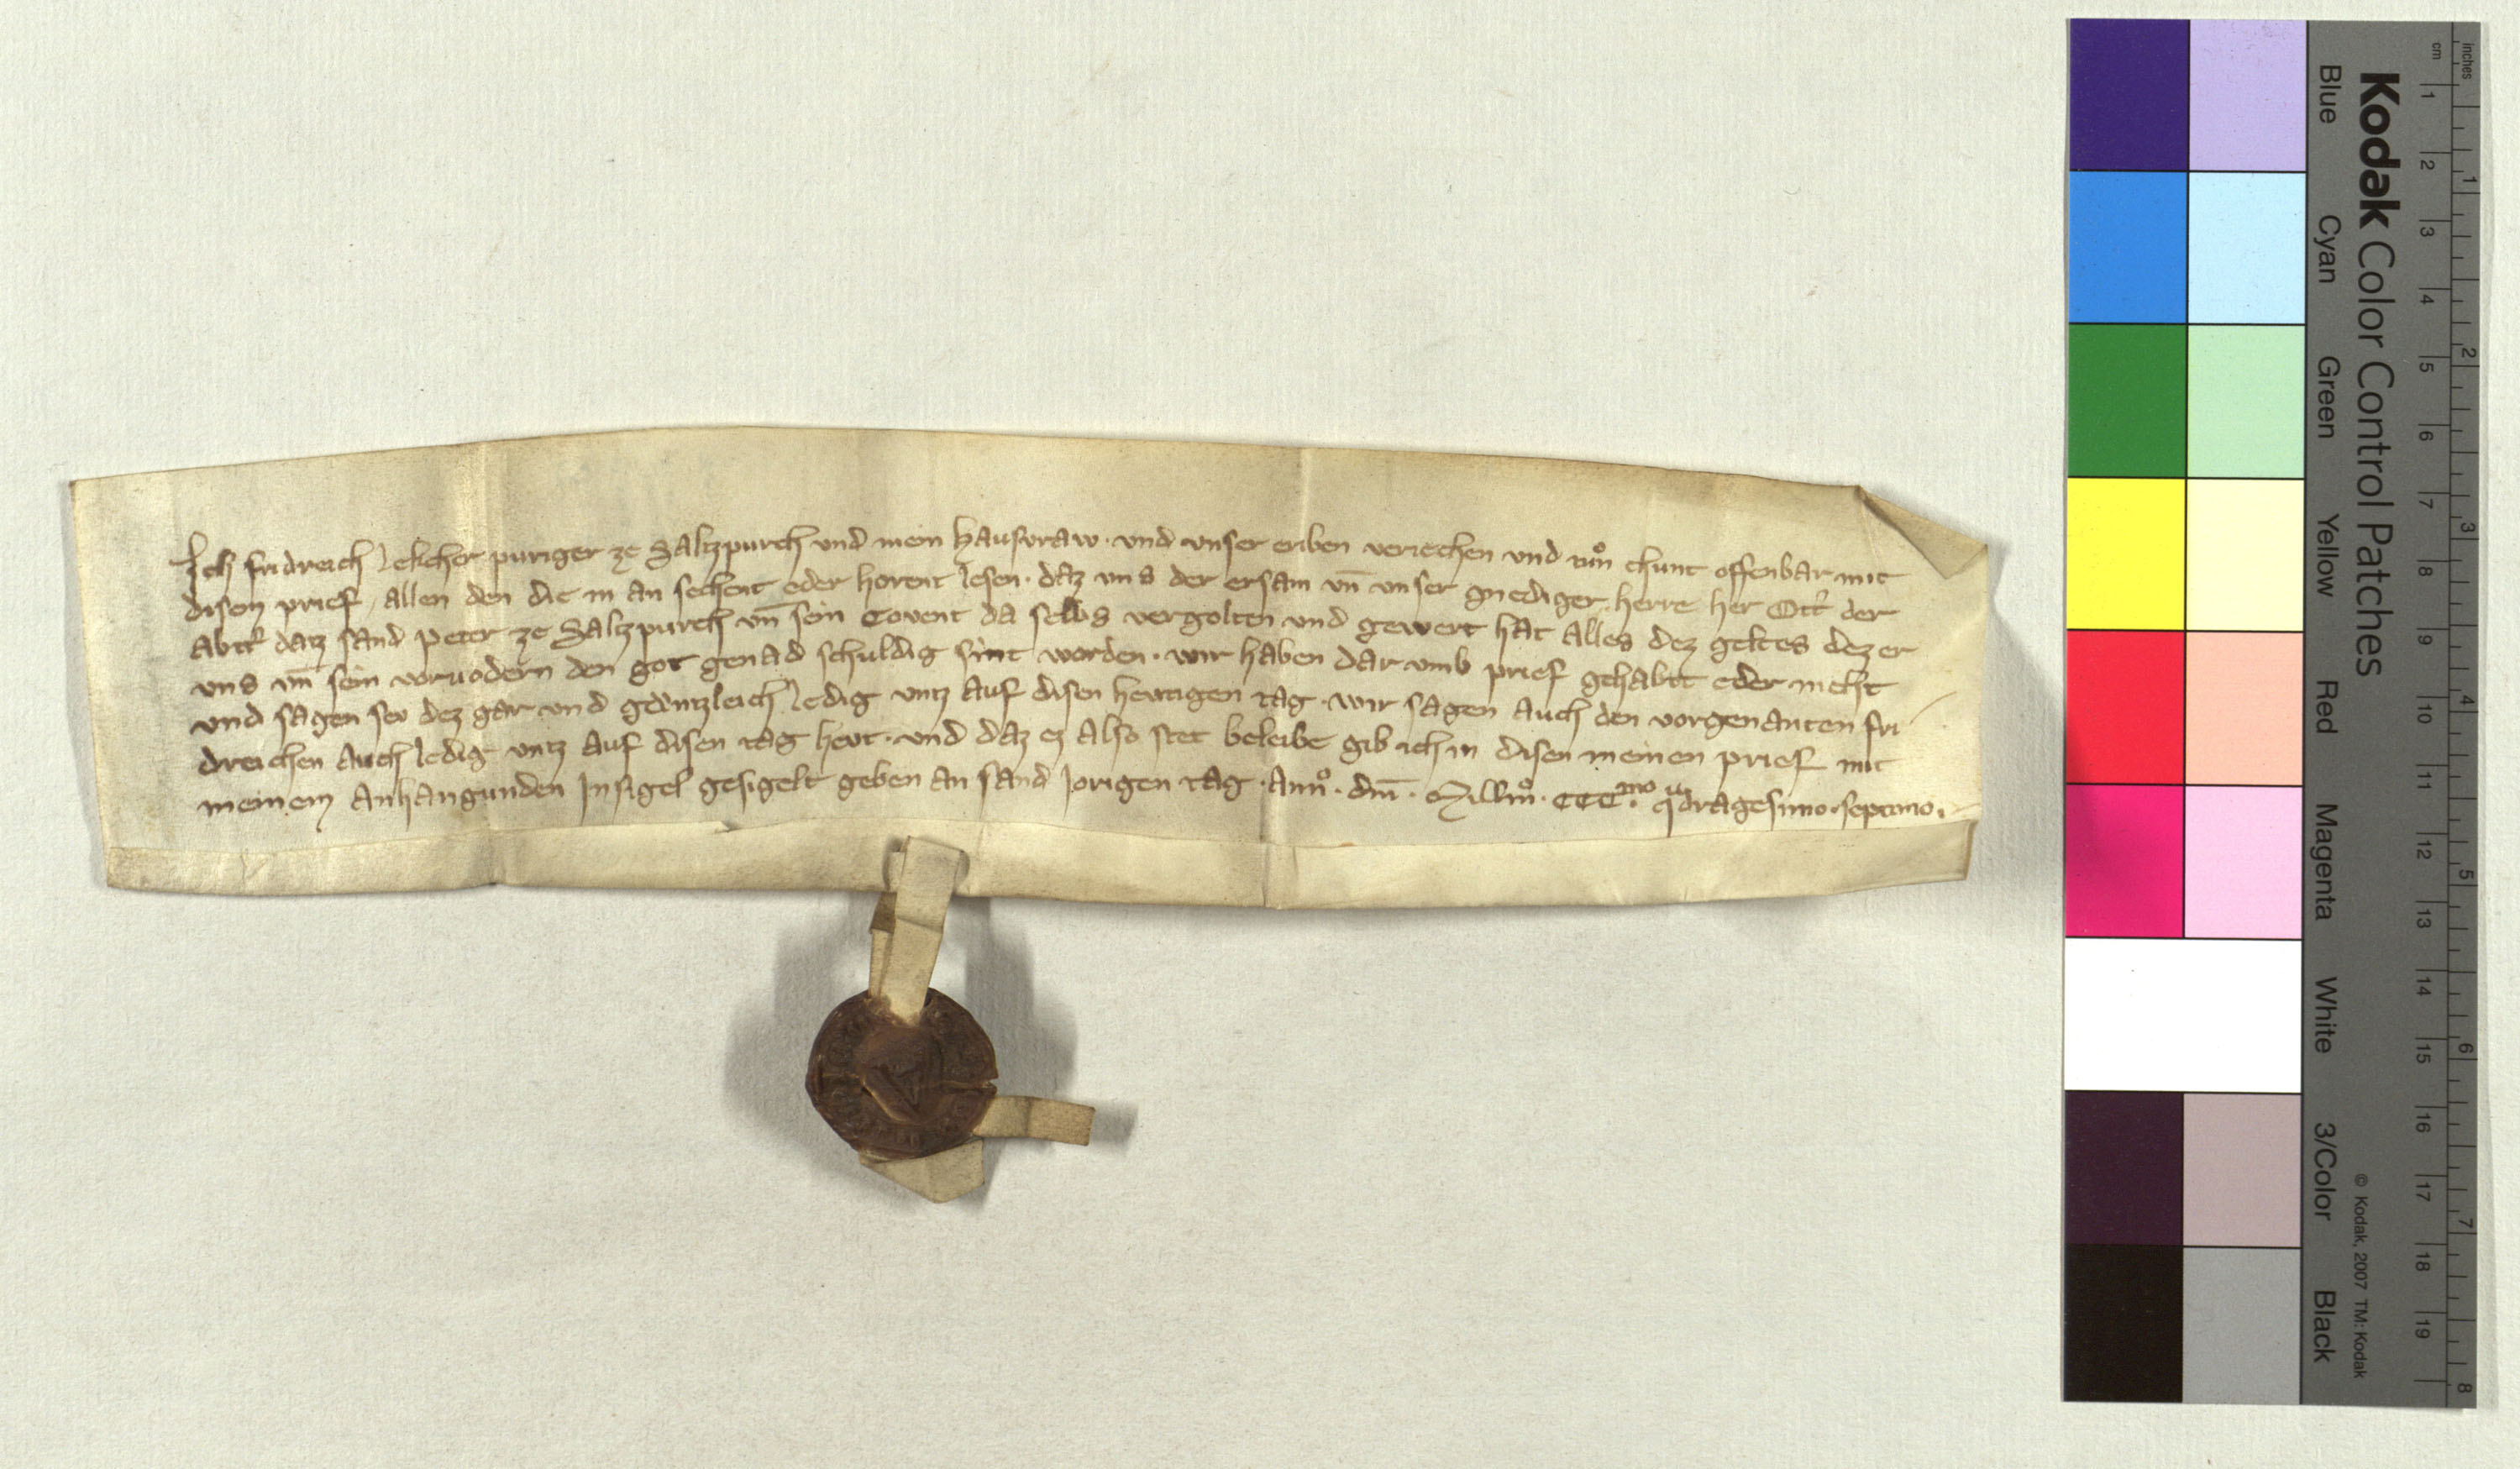 Ich fridreich lekcher puriger ze Saltzpurch und mein hausvraw · und unser eriben veriechen und tůn chunt offenbar mit
disem prief / allen den die in an sechent oder horent lesen · daz uns der ersam un̄ unser gnediger herre her Ott der
Abtt datz sand peter ze Saltzpurch un̄ sein Covent da selbs vergolten und gewert hat alles dez geltes dez er
uns un̄ sein vorvodern den got genad schuldig sint worden · wir haben dar umb prief gehabtt eder nicht
und sagen sev dez gar und gäntzleich ledig untz auf disen hevtigen tag · wir sagen auch den vorgenanten fri
dreichen auch ledig untz auf disen tag hevt · und daz ez also stet beleibe gib ich in disen meinen prief mit
meinem anhangunden Insigel gesigelt geben an sand Jorigen tag · Anno · dm̄ · Millmo · CCCmo · qudragesimo · septimo ·
Kodak Color Control Patches
Blue Cyan Green Yellow Red Magenta White 3/Color Black
© Kodak, 2007 TM: Kodak
inches 1 2 3 4 5 6 7 8
cm 1 2 3 4 5 6 7 8 9 10 11 12 13 14 15 16 17 18 19